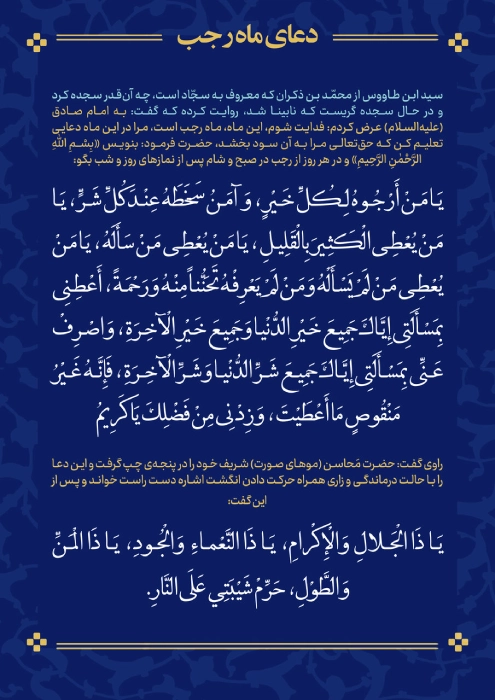 دعای ماه رجب
سید ابن طاووس از محمّد بن ذکران که معروف به سجّاد است، چه آن‌قدر سجده کرد
و در حال سجده گریست که نابینا شد، روایت کرده که گفت: به امام صادق
(علیه‌السلام) عرض کردم: فدایت شوم، این ماه، ماه رجب است، مرا در این ماه دعایی
تعلیم کن که حق‌تعالی مرا به آن سود بخشد، حضرت فرمود: بنویس «بِسْمِ اللهِ
الرَّحْمٰنِ الرَّحِیمِ» و در هر روز از رجب در صبح و شام پس از نمازهای روز و شب بگو:
یَا مَنْ أَرْجُوهُ لِکُلِّ خَیْرٍ، وَ آمَنُ سَخَطَهُ عِنْدَ کُلِّ شَرٍّ، یَا
مَنْ یُعْطِی الْکَثِیرَ بِالْقَلِیلِ، یَا مَنْ یُعْطِی مَنْ سَأَلَهُ، یَا مَنْ
یُعْطِی مَنْ لَمْ یَسْأَلْهُ وَ مَنْ لَمْ یَعْرِفْهُ تَحَنُّناً مِنْهُ وَ رَحْمَةً، أَعْطِنِی
بِمَسْأَلَتِی إِیَّاکَ جَمِیعَ خَیْرِ الدُّنْیا وَ جَمِیعَ خَیْرِ الْآخِرَةِ، وَ اصْرِفْ
عَنِّی بِمَسْأَلَتِی إِیَّاکَ جَمِیعَ شَرِّ الدُّنْیا وَ شَرِّ الْآخِرَةِ، فَإِنَّهُ غَیْرُ
مَنْقُوصٍ مَا أَعْطَیْتَ، وَ زِدْنِی مِنْ فَضْلِکَ یَا کَرِیمُ
راوی گفت: حضرت مَحاسن (موهای صورت) شریف خود را در پنجه‌ی چپ گرفت و این دعا
را با حالت درماندگی و زاری همراه حرکت دادن انگشت اشاره دست راست خواند و پس از
این گفت:
یَا ذَا الْجَلالِ وَالْإِکْرامِ، یَا ذَا النَّعْماءِ وَالْجُودِ، یَا ذَا الْمَنِّ
وَالطَّوْلِ، حَرِّمْ شَیْبَتِی عَلَی النَّارِ.